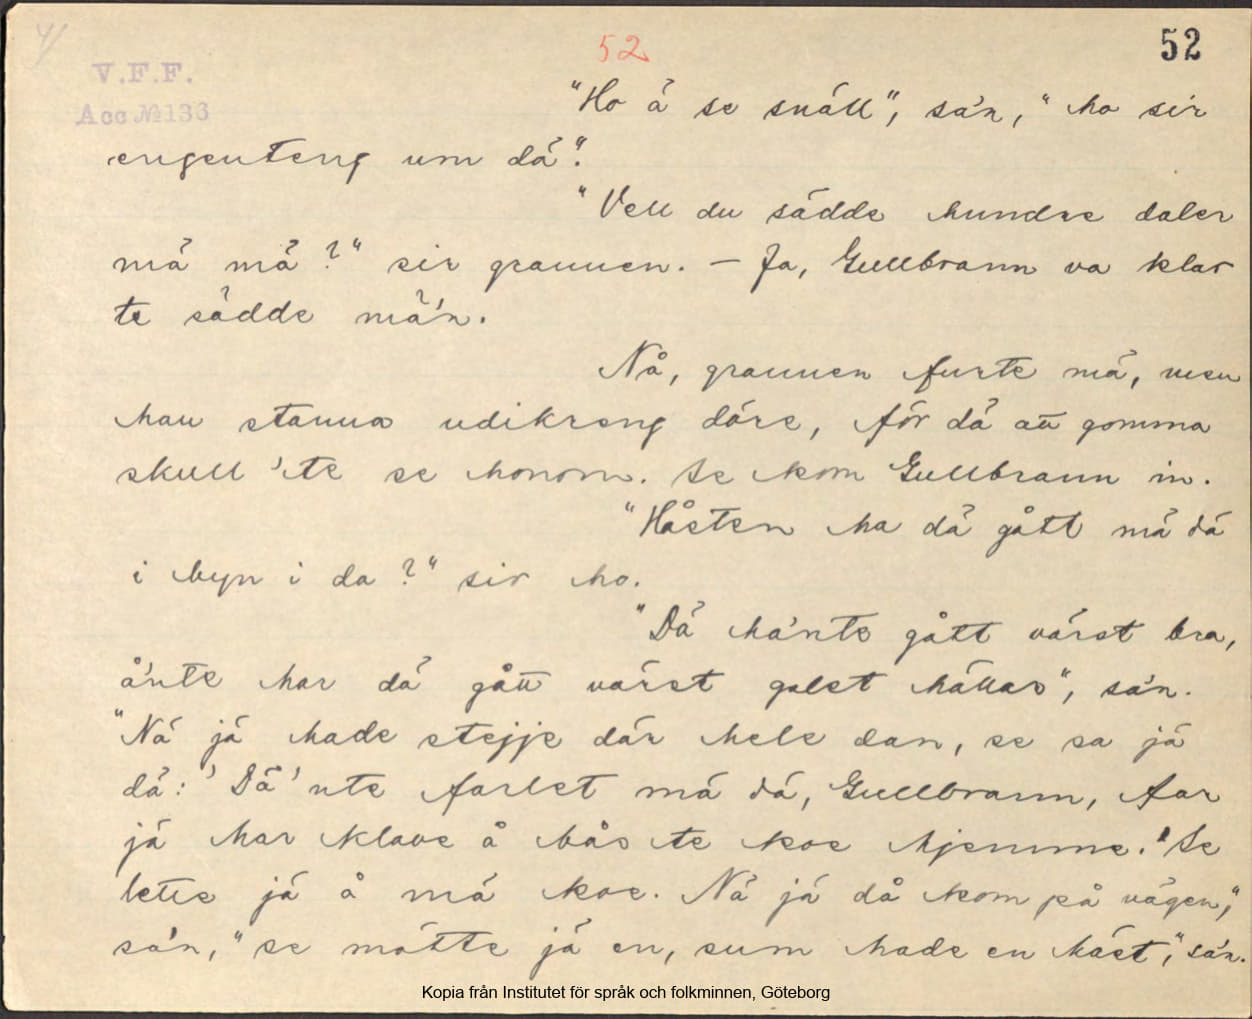 4/
52
52
V.F.F.
Acc № 136
"Ho ä se snäll", sa'n, "ho sir
engenteng um dä".
"Vell du sädde hundre daler
mä mä?" sir grannen. – Ja, Gullbrann va klar
te sädde mä'n.
Nå, grannen furte mä, men
han stanna udikreng döre, för dä att gomma
skull 'te se honom. Se kom Gullbrann in.
"Håsten ha dä gått mä dä
i byn i da?" sir ho.
"Dä ha'nte gått värst bra,
å'nte har dä gått värst galet hällar", sa'n.
"Nä jä hade stejje där hele dan, se sa jä
dä: 'Dä' nte farlet mä dä, Gullbrann, far
jä har klave å bås te koe hjemme.' Se
lette jä å mä koe. Nä jä då kom på vägen,"
sa'n, "se mötte jä en, sum hade en häst," sa'n.
Kopia från Institutet för språk och folkminnen, Göteborg